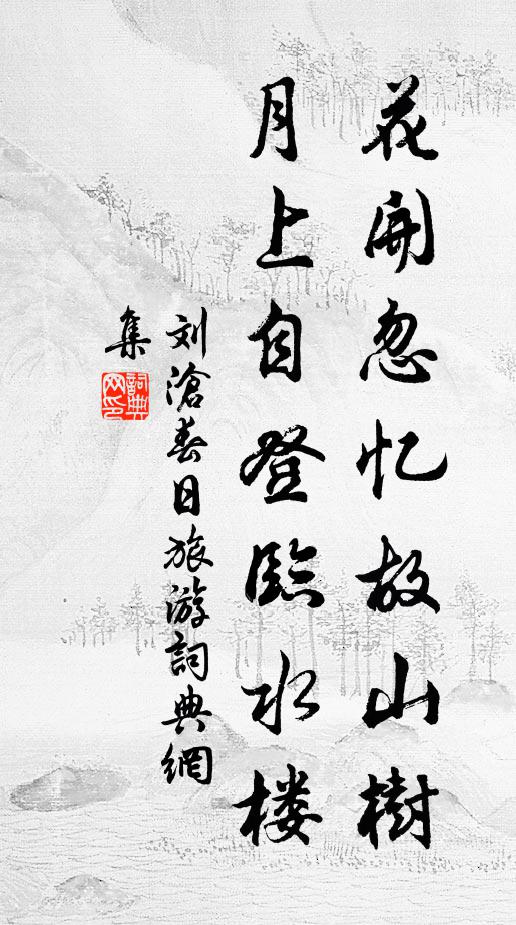 花開忽忆故山樹
月上自登臨水楼
刘滄春日旅游詞典網
集
詞典网印